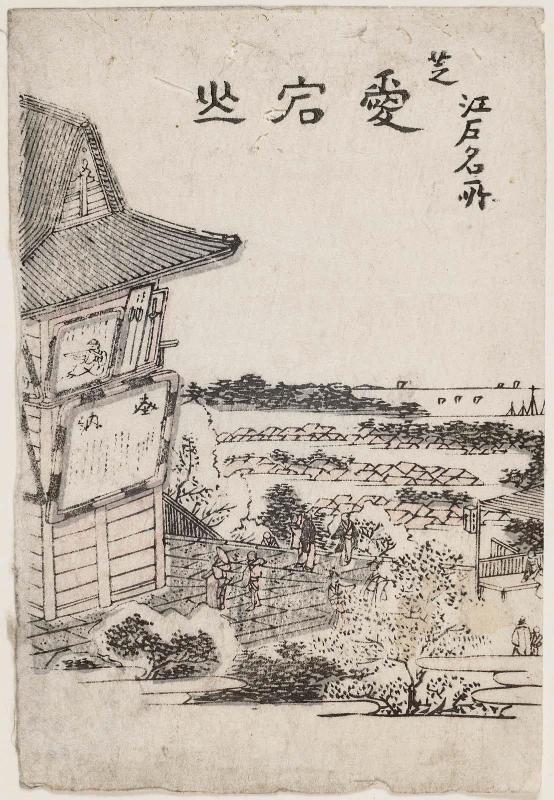 江戸名所
芝
愛宕山
奉納